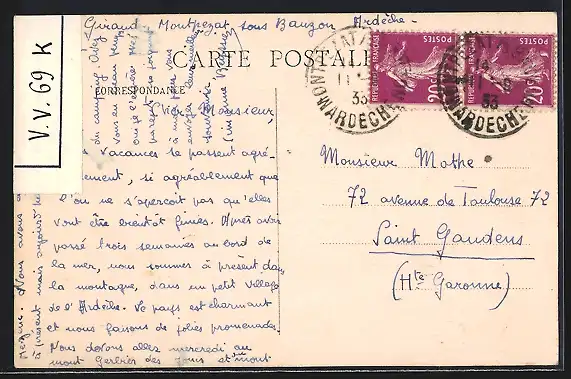 Giraud Montpezat sous Bauzon Ardèche -
CARTE POSTALE
CORRESPONDANCE
V.V. 69 K
POSTES
REPUBLIQUE FRANÇAISE
20c
POSTES
REPUBLIQUE FRANÇAISE
20c
14
33
ARDECHE
Cher Monsieur,
vacances se passent agré-
ment, si agréablement que
l'on ne s'aperçoit pas qu'elles
vont être bientôt finies. Après avoir
passé trois semaines au bord de
la mer, nous sommes à présent dans
la montagne, dans un petit village
de l'Ardèche. Le pays est charmant
et nous faisons de jolies promenades.
Nous devons aller mercredi au
mont Gerbier des Joncs et mont
Mezenc. Nous avons
à présent mais
du camping. Avez
vous
parents se joignent
à moi pour vous
envoyer leur meilleur
souvenir
Monsieur Mothe
72 avenue de Toulouse 72
Saint Gaudens
(Hte Garonne)